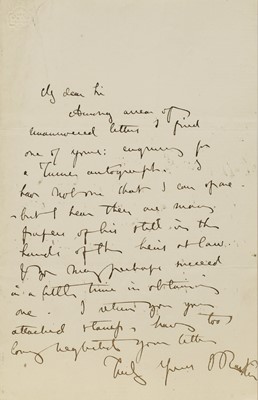 My dear Sir
Among arrears of
unanswered letters I find
one of yours: enquiring for
a Turner autograph. I
have not one that I can spare -
but I hear there are many
papers of his still in the
hands of the heirs at law.
& you may perhaps succeed
in a little time in obtaining
one. I return you your
attached stamps, having too
long neglected your letter
Truly yours J Ruskin